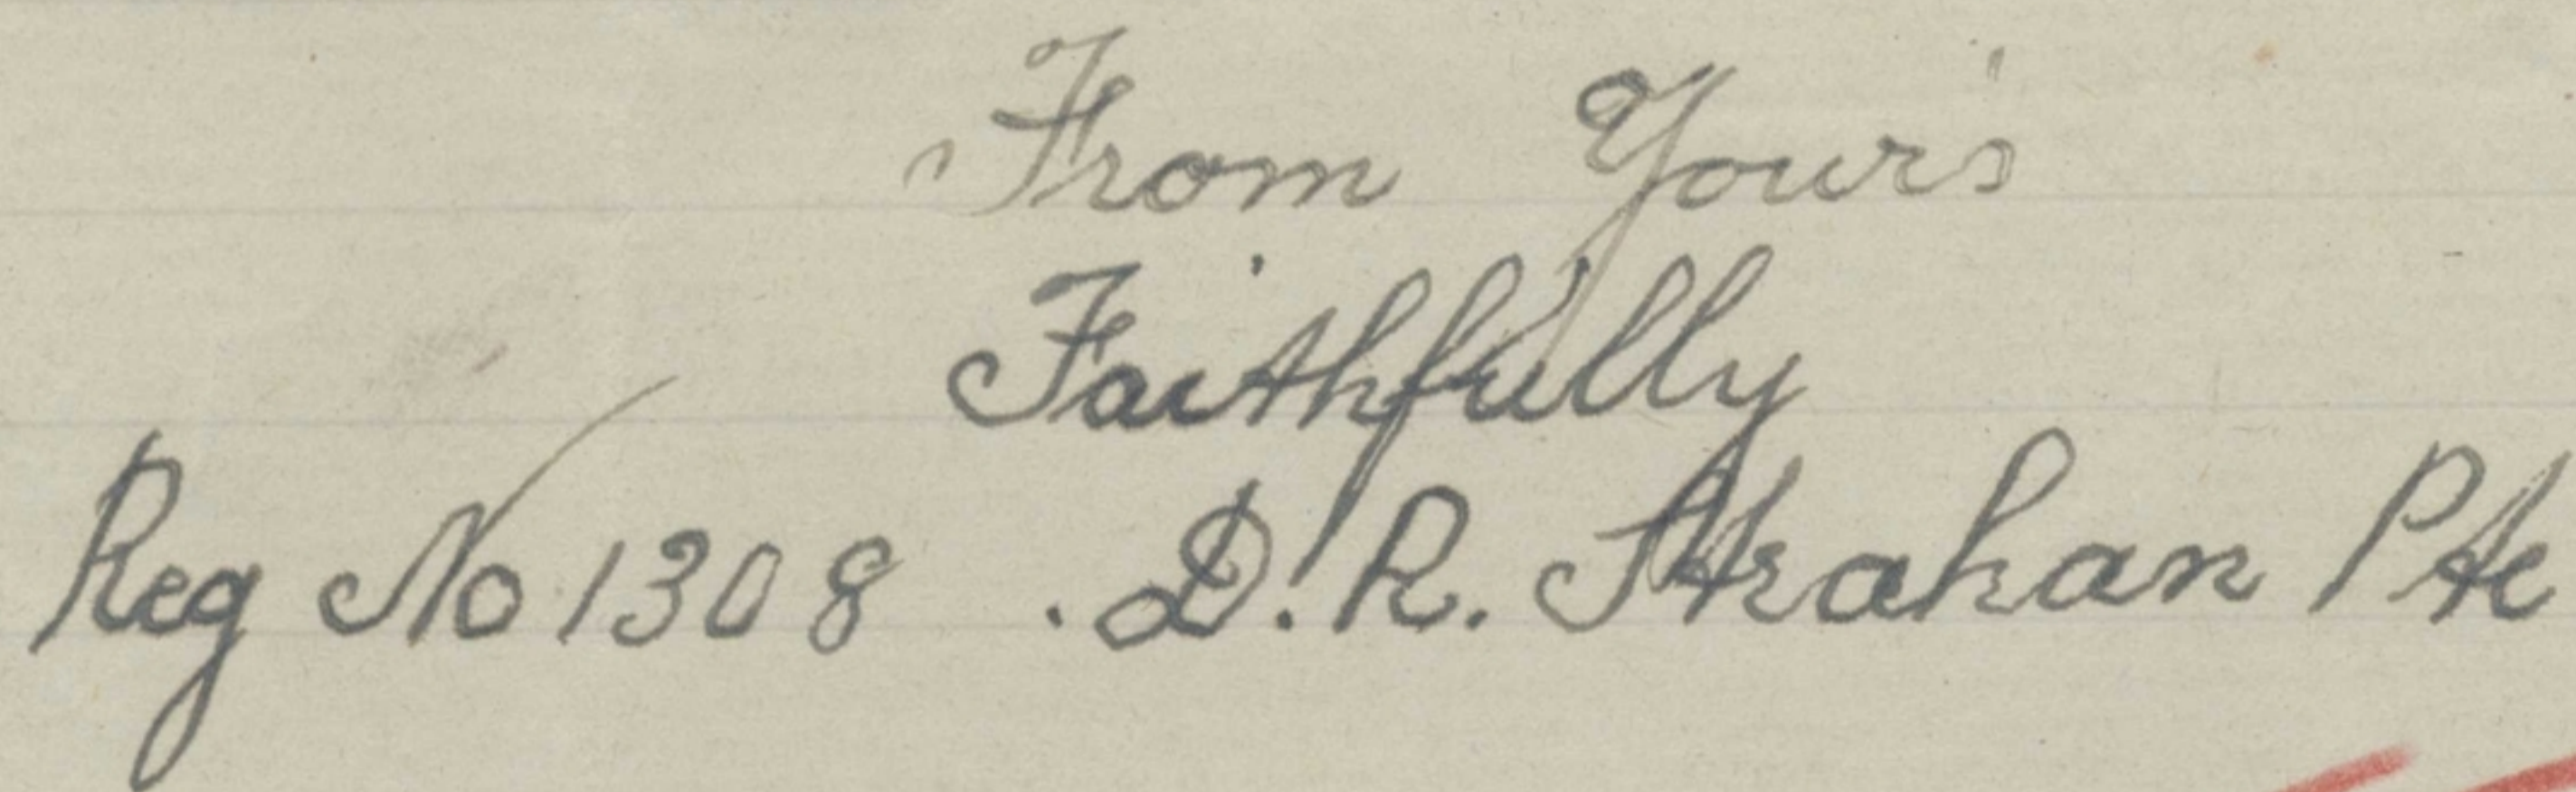 From Your's
Faithfully
Reg No 1308 . D. R. Strahan Pte